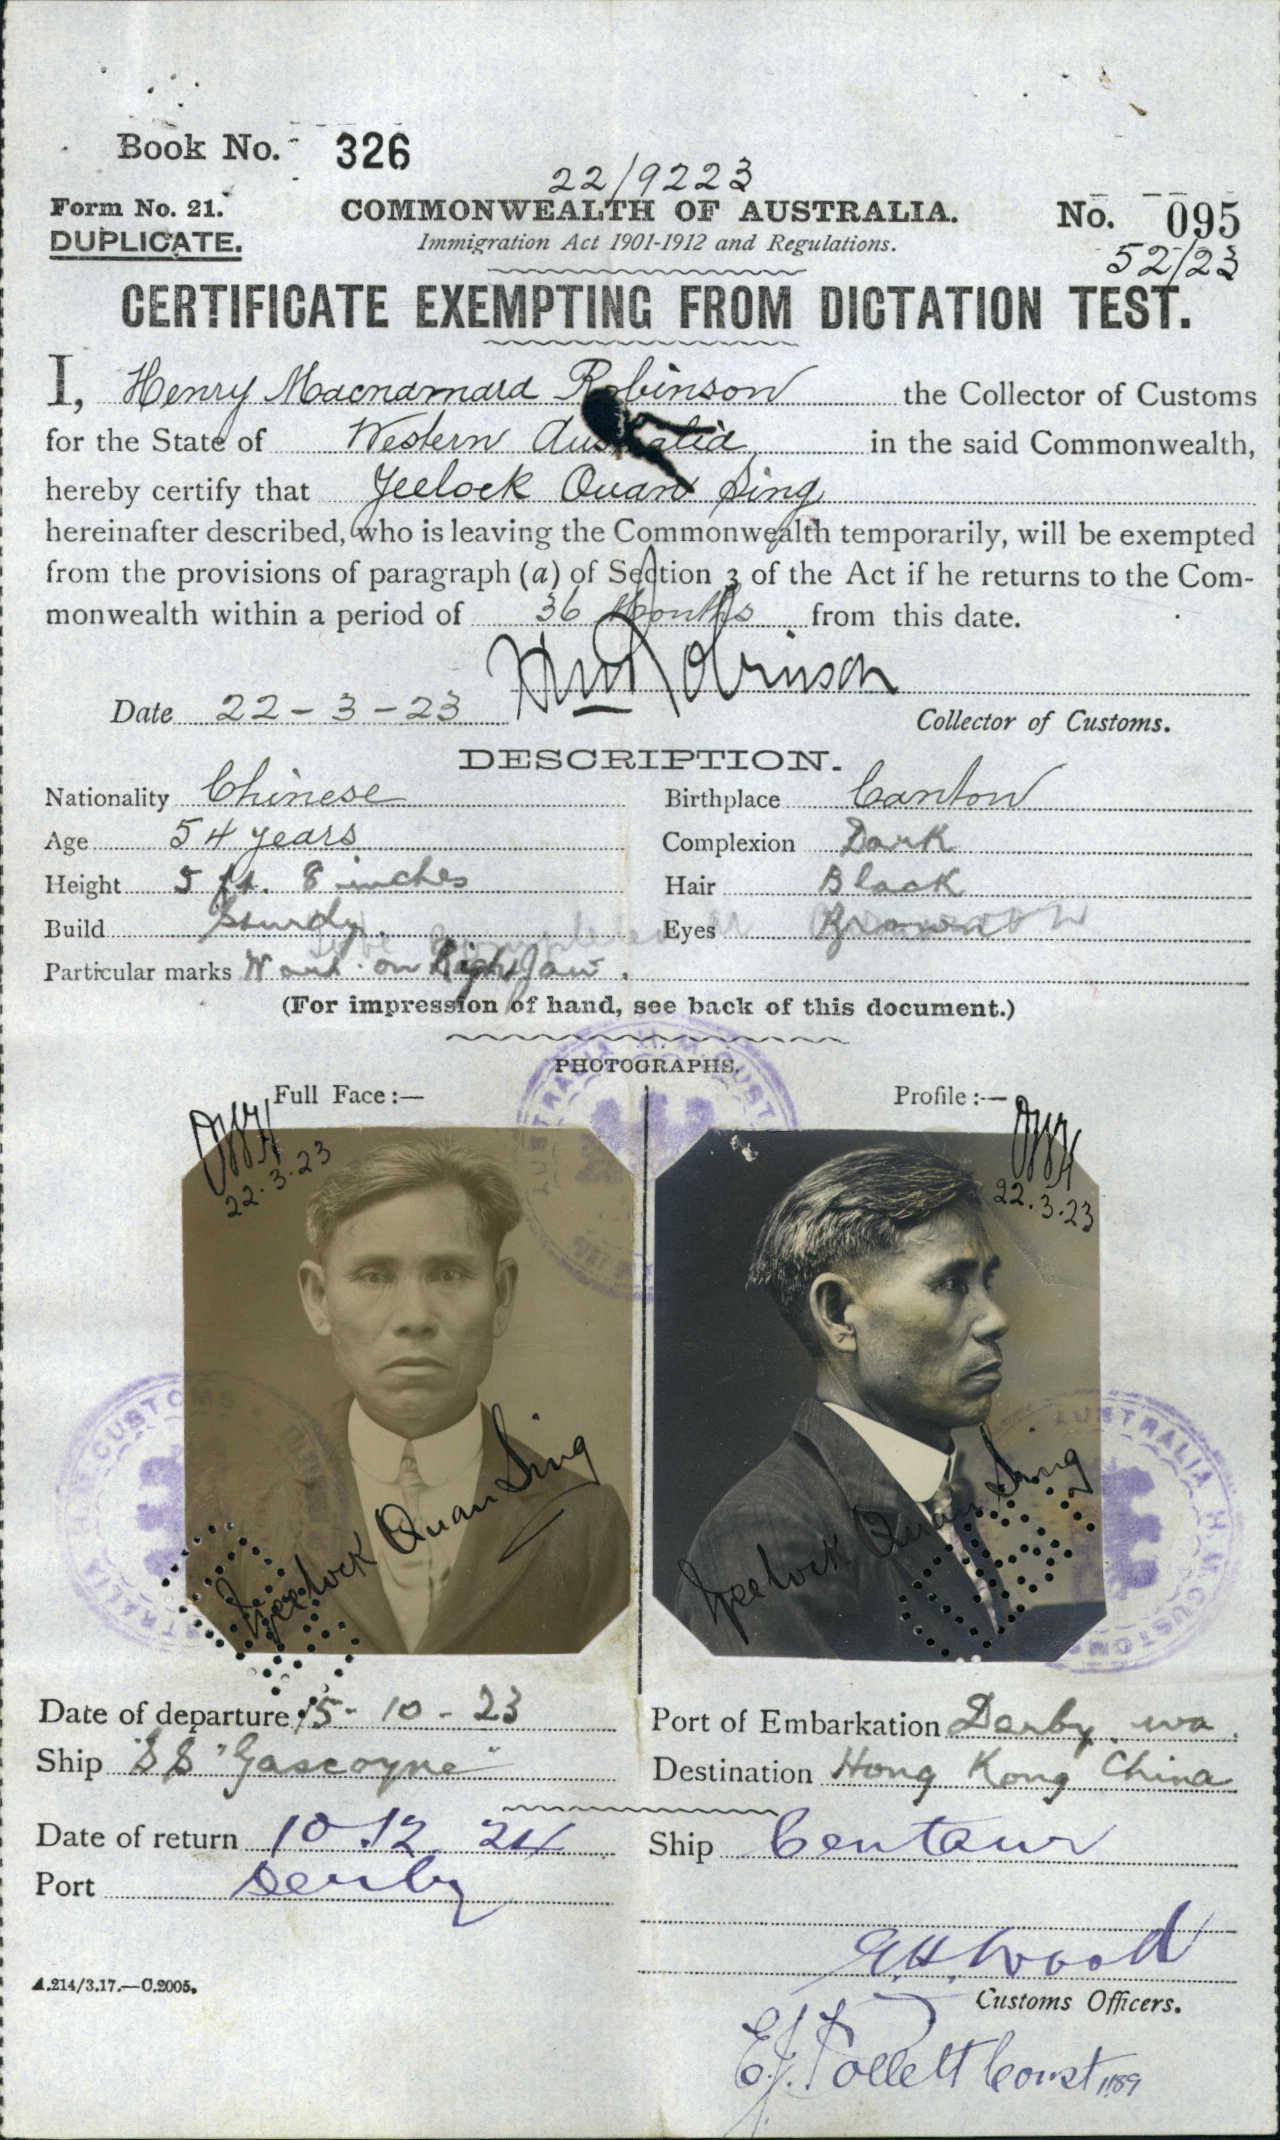 Book No. 326
22/9223
Form No. 21.
COMMONWEALTH OF AUSTRALIA.
No. 095
DUPLICATE.
Immigration Act 1901-1912 and Regulations.
52/23
CERTIFICATE EXEMPTING FROM DICTATION TEST.
I, Henry Macnamara Robinson the Collector of Customs
for the State of Western Australia in the said Commonwealth,
hereby certify that Yeelock Quan Sing
hereinafter described, who is leaving the Commonwealth temporarily, will be exempted
from the provisions of paragraph (a) of Section 3 of the Act if he returns to the Com-
monwealth within a period of 36 Months from this date.
HM Robinson
Date 22-3-23
Collector of Customs.
DESCRIPTION.
Nationality Chinese
Birthplace Canton
Age 54 years
Complexion Dark
Height 5 ft. 8 inches
Hair Black
Build Sturdy.
Eyes Brown
Particular marks Wart on Right Jaw.
(For impression of hand, see back of this document.)
PHOTOGRAPHS.
Full Face:—
Profile:—
22.3.23
22.3.23
Yeelock Quan Sing
Yeelock Quan Sing
AUSTRALIA H.M. CUSTOMS
H.M. CUSTOMS AUSTRALIA
AUSTRALIA H.M. CUSTOMS
Date of departure 15-10-23
Port of Embarkation Derby. wa.
Ship SS "Gascoyne"
Destination Hong Kong China
Date of return 10.12.24
Ship Centaur
Port Derby
G.H. Wood
A.214/3.17.—C.2005.
Customs Officers.
E.J. Pollett Const 1189